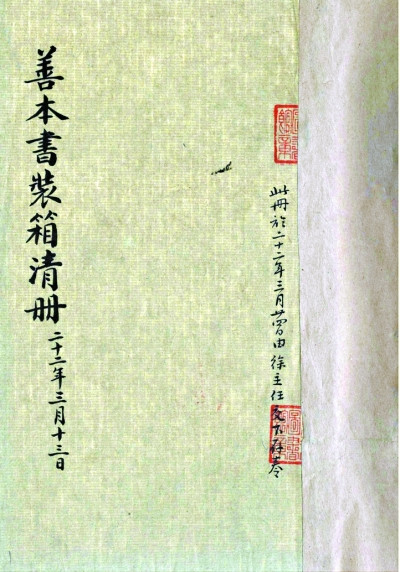 此冊於二十二年三月曾由徐主任交下
善本書裝箱清冊
二十二年三月十三日